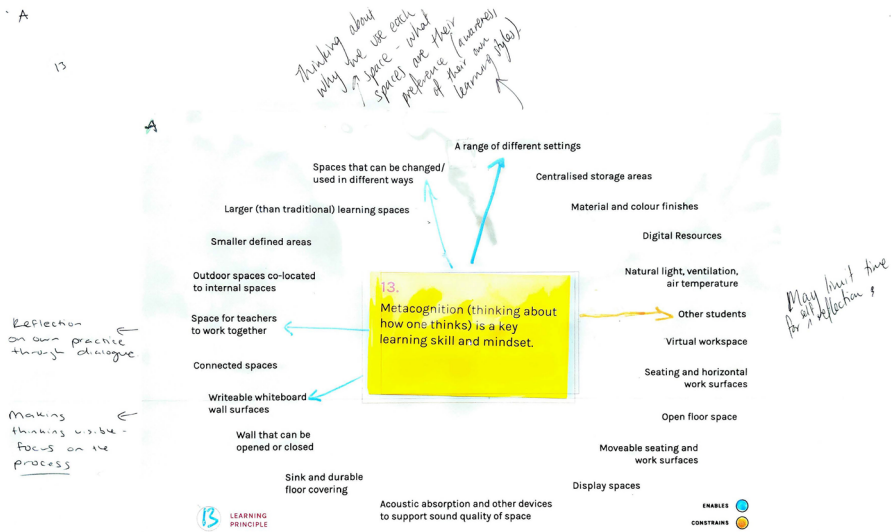 A
13
Thinking about
why we use each
space - what
spaces are their
preference (awareness
of their own
learning styles).
A
A range of different settings
Spaces that can be changed/
used in different ways
Centralised storage areas
Larger (than traditional) learning spaces
Material and colour finishes
Smaller defined areas
Digital Resources
Outdoor spaces co-located
to internal spaces
Natural light, ventilation,
air temperature
13.
Metacognition (thinking about
how one thinks) is a key
learning skill and mindset.
May limit time
for self reflection
Other students
Space for teachers
to work together
Reflection
on own practice
through dialogue
Virtual workspace
Connected spaces
Seating and horizontal
work surfaces
Writeable whiteboard
wall surfaces
Making
thinking visible -
focus on the
process
Open floor space
Wall that can be
opened or closed
Moveable seating and
work surfaces
Sink and durable
floor covering
Display spaces
Acoustic absorption and other devices
to support sound quality of space
13
LEARNING
PRINCIPLE
ENABLES
CONSTRAINS